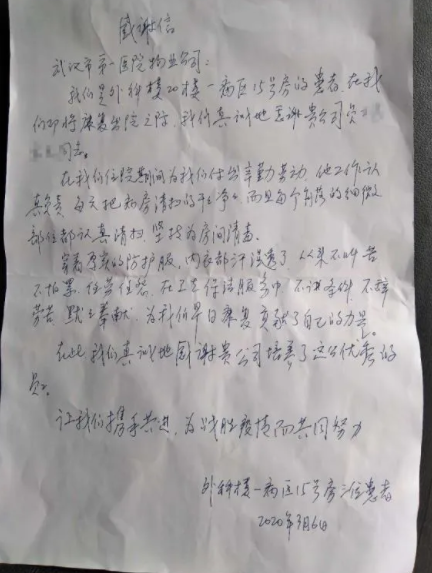 感谢信
武汉市第一医院物业公司：
我们是外科楼20楼一病区15号房的患者，在我
们即将康复出院之际，我们真诚地感谢贵公司员
同志。
在我们住院期间为我们付出辛勤劳动，他工作认
真负责，每天把病房清扫的干干净净，而且每个角落的细微
部位都认真清扫，坚持为房间清毒。
穿着厚实的防护服，内衣都汗湿透了，从来不叫苦
不怕累，任劳任怨，在工作保洁服务中，不讲条件，不辞
劳苦，默默奉献，为我们早日康复贡献了自己的力量。
在此，我们真诚地感谢贵公司培养了这么优秀的
员工。
让我们携手共进，为战胜疫情而共同努力
外科楼一病区15号房 患者
2020年3月6日